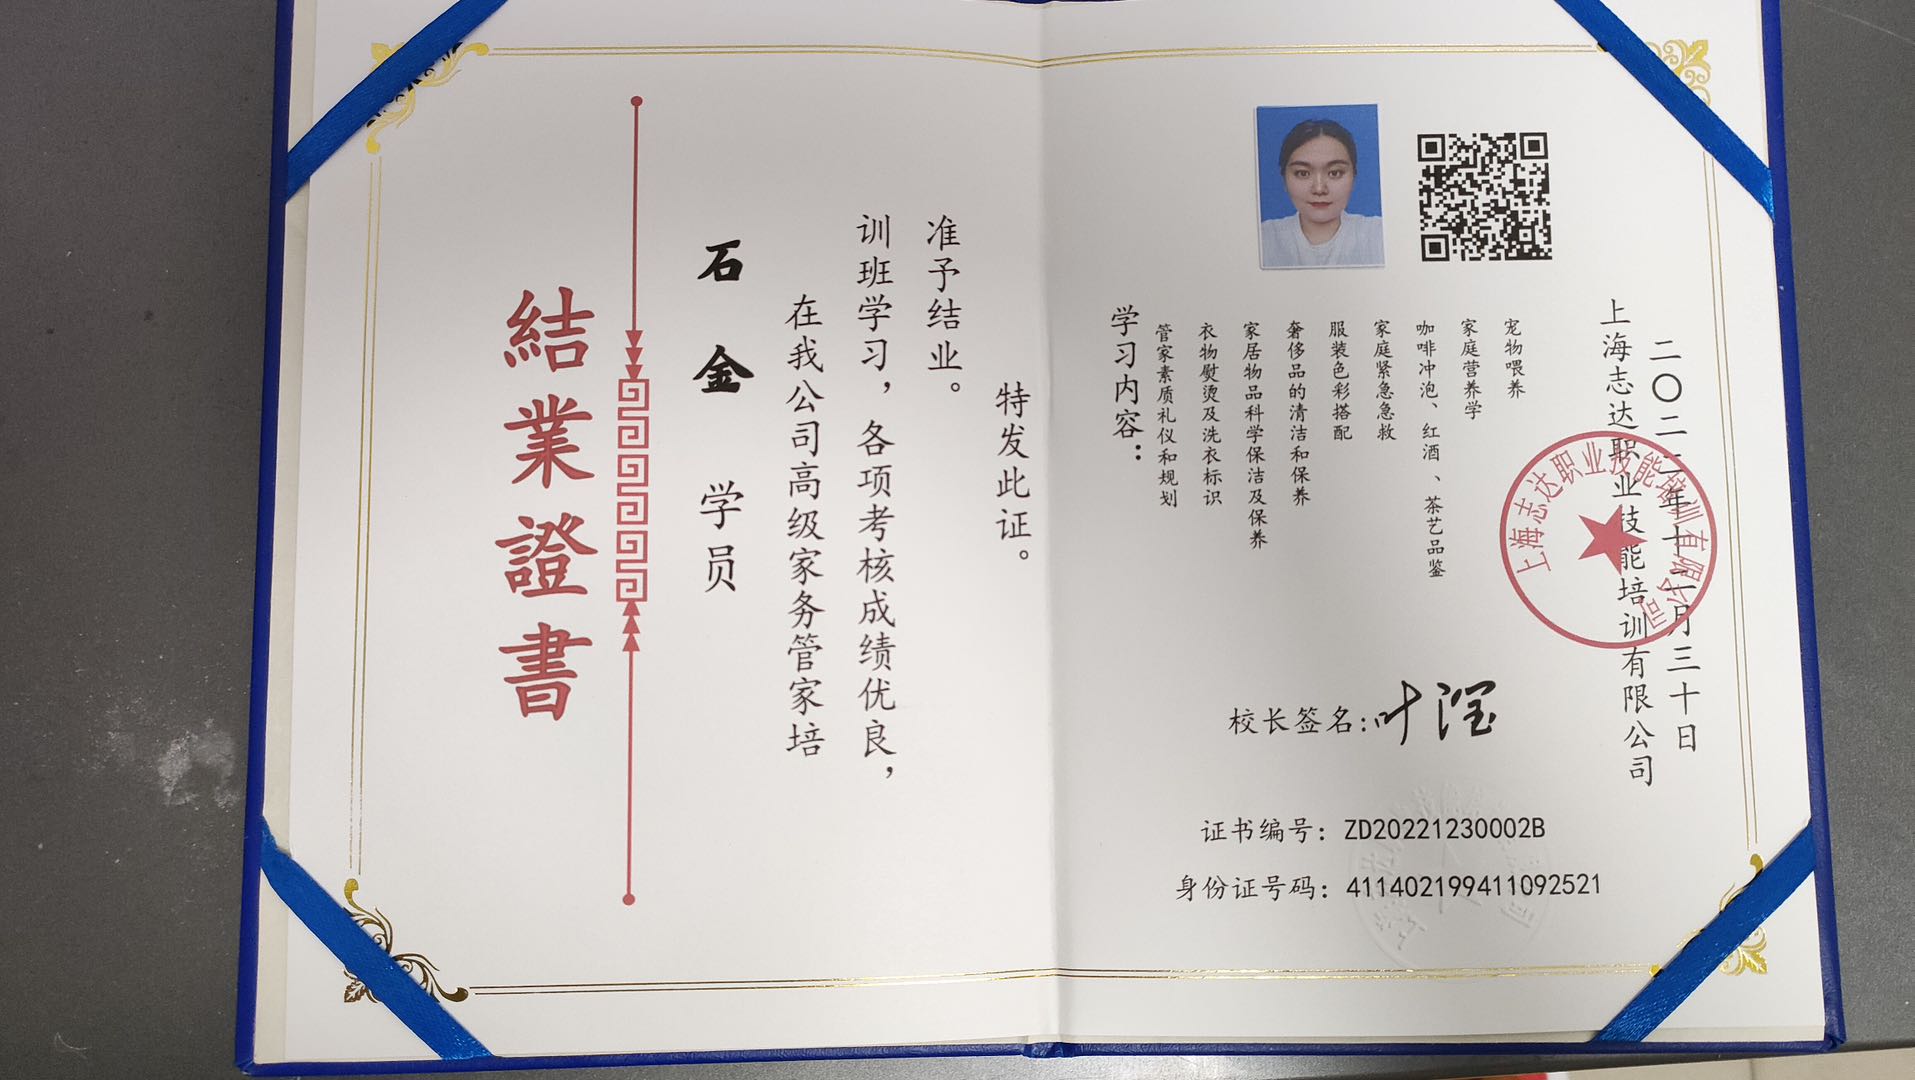 結業證書
石金 学员
在我公司高级家务管家培
训班学习，各项考核成绩优良，
准予结业。
特发此证。
学习内容：
管家素质礼仪和规划
衣物熨烫及洗衣标识
家居物品科学保洁及保养
奢侈品的清洁和保养
服装色彩搭配
家庭紧急急救
咖啡冲泡、红酒、茶艺品鉴
家庭营养学
宠物喂养
上海志达职业技能培训有限公司
二〇二二年十二月三十日
上海志达职业技能培训有限公司
校长签名:叶滢
证书编号：ZD20221230002B
身份证号码：411402199411092521